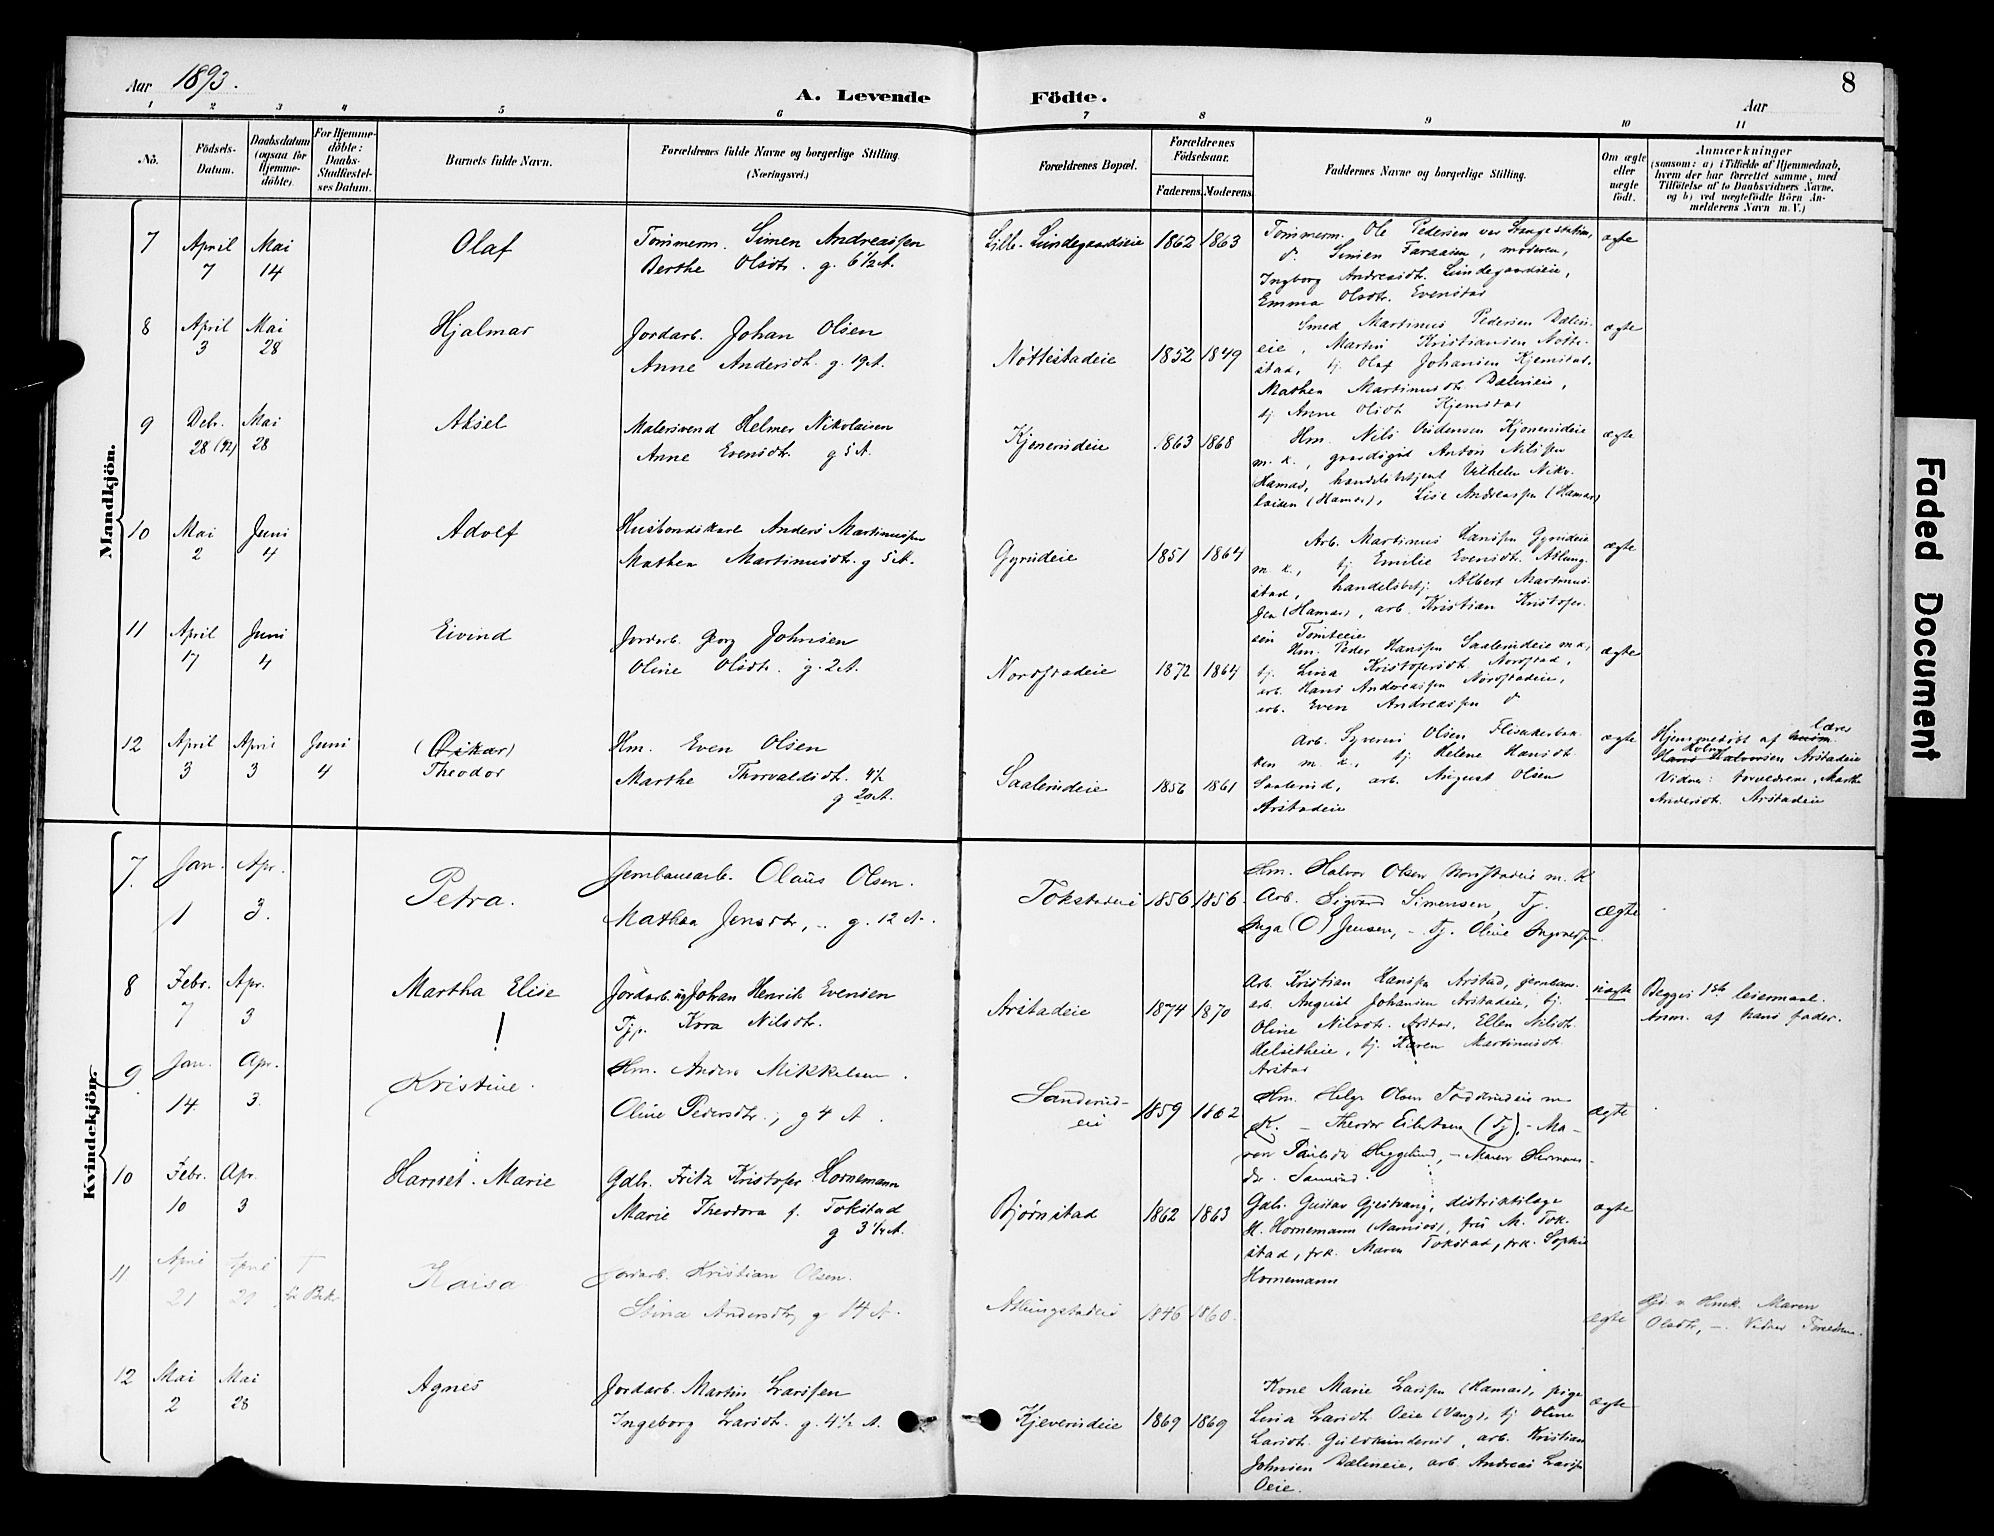 Aar 1893.
A. Levende Födte.
Aar
8
1 2 3 4 5 6 7 8 9 10 11
No.
Födsels-Datum.
Daabsdatum (ogsaa for Hjemme-döbte).
For Hjemme-döbte: Daabs-Stadfæstel-ses Datum.
Barnets fulde Navn.
Forældrenes fulde Navne og borgerlige Stilling. (Næringsvei.)
Forældrenes Bopæl.
Forældrenes Födselsaar.
Faderens. Moderens.
Faddernes Navne og borgerlige Stilling.
Om ægte eller uægte födt.
Anmærkninger
(saasom: a) i Tilfælde af Hjemmedaab, hvem der har forrettet samme, med Tilföielse af to Daabsvidners Navne, og b) ved uægtefödte Börn An-melderens Navn m. V.)
Mandkjön.
7 April 7 Mai 14 Olaf
Tømmerm. Simen Andreassen
Berthe Olsdtr. g. 6½ A.
Lille-Lundegaardseie 1862 1863
Tømmerm. Ole Pedersen ved Stange station,
Simen Faraasen, moderen,
Ingborg Andreasdt. Lundegaardseie,
Emma Olsdtr. Evenstad
ægte
8 April 3 Mai 28 Hjalmar
Jordarb. Johan Olsen
Anne Andersdt. g. 19 A.
Nøttestadeie 1852 1849
Smed Martinus Pedersen Dælin-
eie, Martin Kristiansen Nøtte-
stad, tj. Olaf Johansen Kjemstad,
Mathea Martinusdt. Dælineie,
tj. Anne Olsdt. Kjemstad
ægte
9 Debr. 28 (92) Mai 28 Aksel
Malersvend Helmer Nikolaisen
Anne Evensdtr. g 5 A.
Kjonerudeie 1863 1868
Hm. Nils Kjonerudeie
m. k., gaardsgut Anton Nilssen
Hamar, handelsbetjent Vilhelm Niko-
laisen (Hamar), Lise Andreassen (Hamar)
ægte
10 Mai 2 Juni 4 Adolf
Husbondskarl Anders Martinussen
Mathea Martinusdt. g 5 A.
Gyrudeie 1851 1864
Arb. Martinus Hanssen Gyrudeie
m. k., tj. Emilie Evensdt. Atlung-
stad, handelsbetj. Albert Martinus-
sen (Hamar), arb. Kristian Kristofer-
sen Tomteeie
ægte
11 April 17 Juni 4 Eivind
Jordarb. Georg Johnsen
Oline Olsdtr. g. 2 A.
Nordstadeie 1872 1864
Hm. Peder Hanssen Saalerudeie m. k.,
tj. Lina Kristofersdt. Nordstad,
arb. Hans Andreassen Nordstadeie,
arb. Even Andreassen
ægte
12 April 3 April 3 Juni 4 (Oskar) Theodor
Hm. Even Olsen
Marthe Thorvaldsdt. g
Saalerudeie 1856 1861
Arb. Syverin Olsen Flisakerbak-
ken m. k., tj. Helene Hansdt.
Saalerud, arb. August Olsen
Arstadeie
ægte
Hjemmedøbt af lærer
Halvorsen Arstadeie
Vidner: forældrene, Marthe
Andersdt. Arstadeie
Kvindekjön.
7. Jan. 1 Apr. 3. Petra.
Jernbanearb. Olaus Olsen.
Mathea Jensdtr, - g. 12 A.
Tokstadeie 1856 1856.
Hm. Halvor Olsen Nordstadeie m. K
Arb. Sigvard Simensen, Tj.
Inga (O) Jensen, - Tj. Oline
ægte
8 Febr. 7 Apr. 3 Martha Elise
Jordarb. ug. Johan Henrik Evensen
Tjp. Kora Nilsdtr.
Arstadeie 1874 1870
Arb. Kristian Hanssen Arstad, jernban.
arb. August Johansen Arstadeie, tj.
Oline Nilsdtr. Arstad, Ellen Nilsdt.
Helsetheie, tj. Karen Martinusdt.
Arstad
uægte
Begges 1ste leiermaal.
Anm. af hans fader.
9. Jan. 14 Apr. 3. Kristine.
Hm. Anders Mikkelsen.
Oline Pedersdtr., g 4 A.
Sanderud-eie 1859 1862
Hm. Helge Olsen m
K. - Theodor Eilertsen (Tj), - Ma-
ren
ægte
10 Febr. 10 Apr. 3 Harriet Marie
Gdbr. Fritz Kristofer Hornemann
Marie Theodora f. Tokstad
g 3¼ A.
Bjørnstad 1862 1863
Gdb. Gustav Gjestvang, distriktslæge
H. Hornemann (Namsos), fru M. Tok-
stad, frk. Maren Tokstad, frk. Sophie
Hornemann
ægte
11 April 21 April 21 Kaisa
Jordarb. Kristian Olsen.
Stina Andersdtr, g 14 A.
Atlungstadeie 1846 1860.
ægte
Hjd. v. Maren
Olsdtr, -. Vidner Forældrene.
12 Mai 2 Mai 28 Agnes
Jordarb. Martin Larssen
Ingeborg Larsdt. g. 4½ A.
Kjeverudeie 1869 1869
Kone Marie Larssen (Hamar), pige
Lina Larsdt. Oeie (Vang), tj Oline
Larsdt. Guldhunderud, arb. Kristian
Johnsen Dælineie, arb. Andreas Larssen
Oeie.
ægte
Faded Document